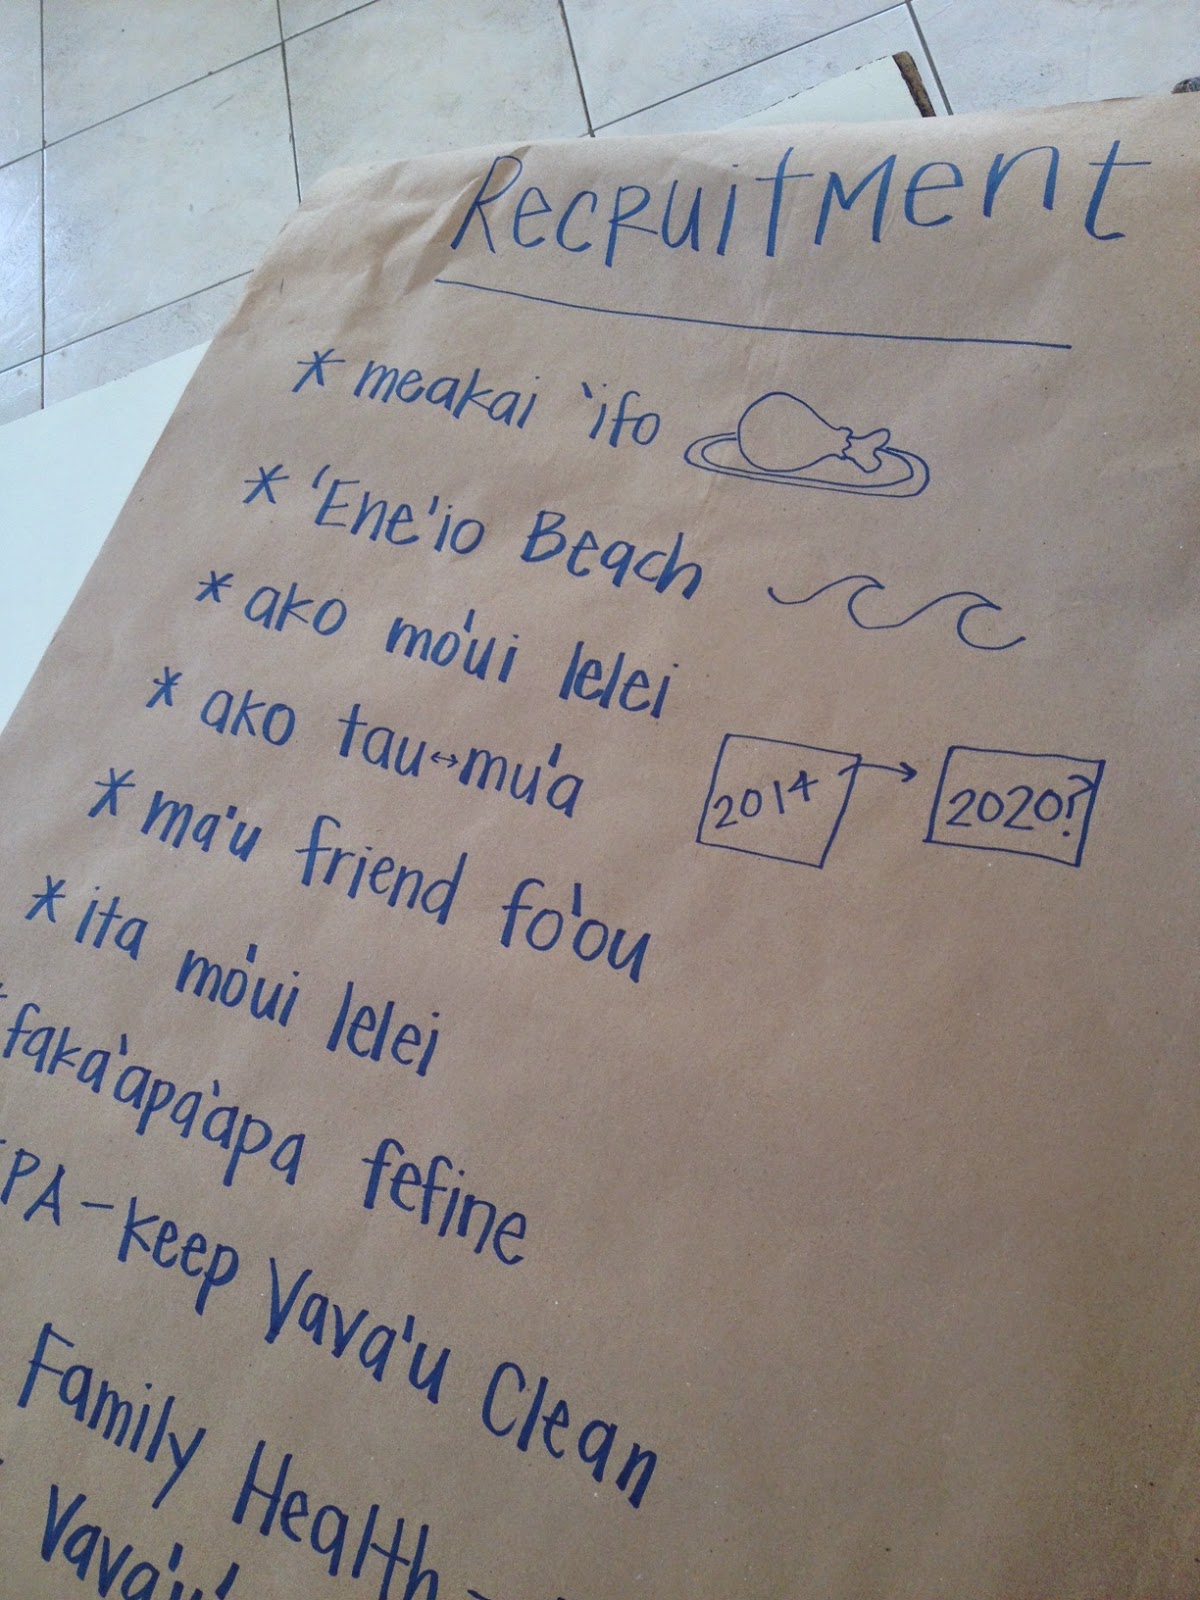 Recruitment
* meakai 'ifo
* 'Ene'io Beach
* ako mo'ui lelei
* ako tau↔mu'a 2014 → 2020?
* ma'u friend fo'ou
* ita mo'ui lelei
faka'apa'apa fefine
PA - keep Vava'u Clean
Family Health -
Vava'u'